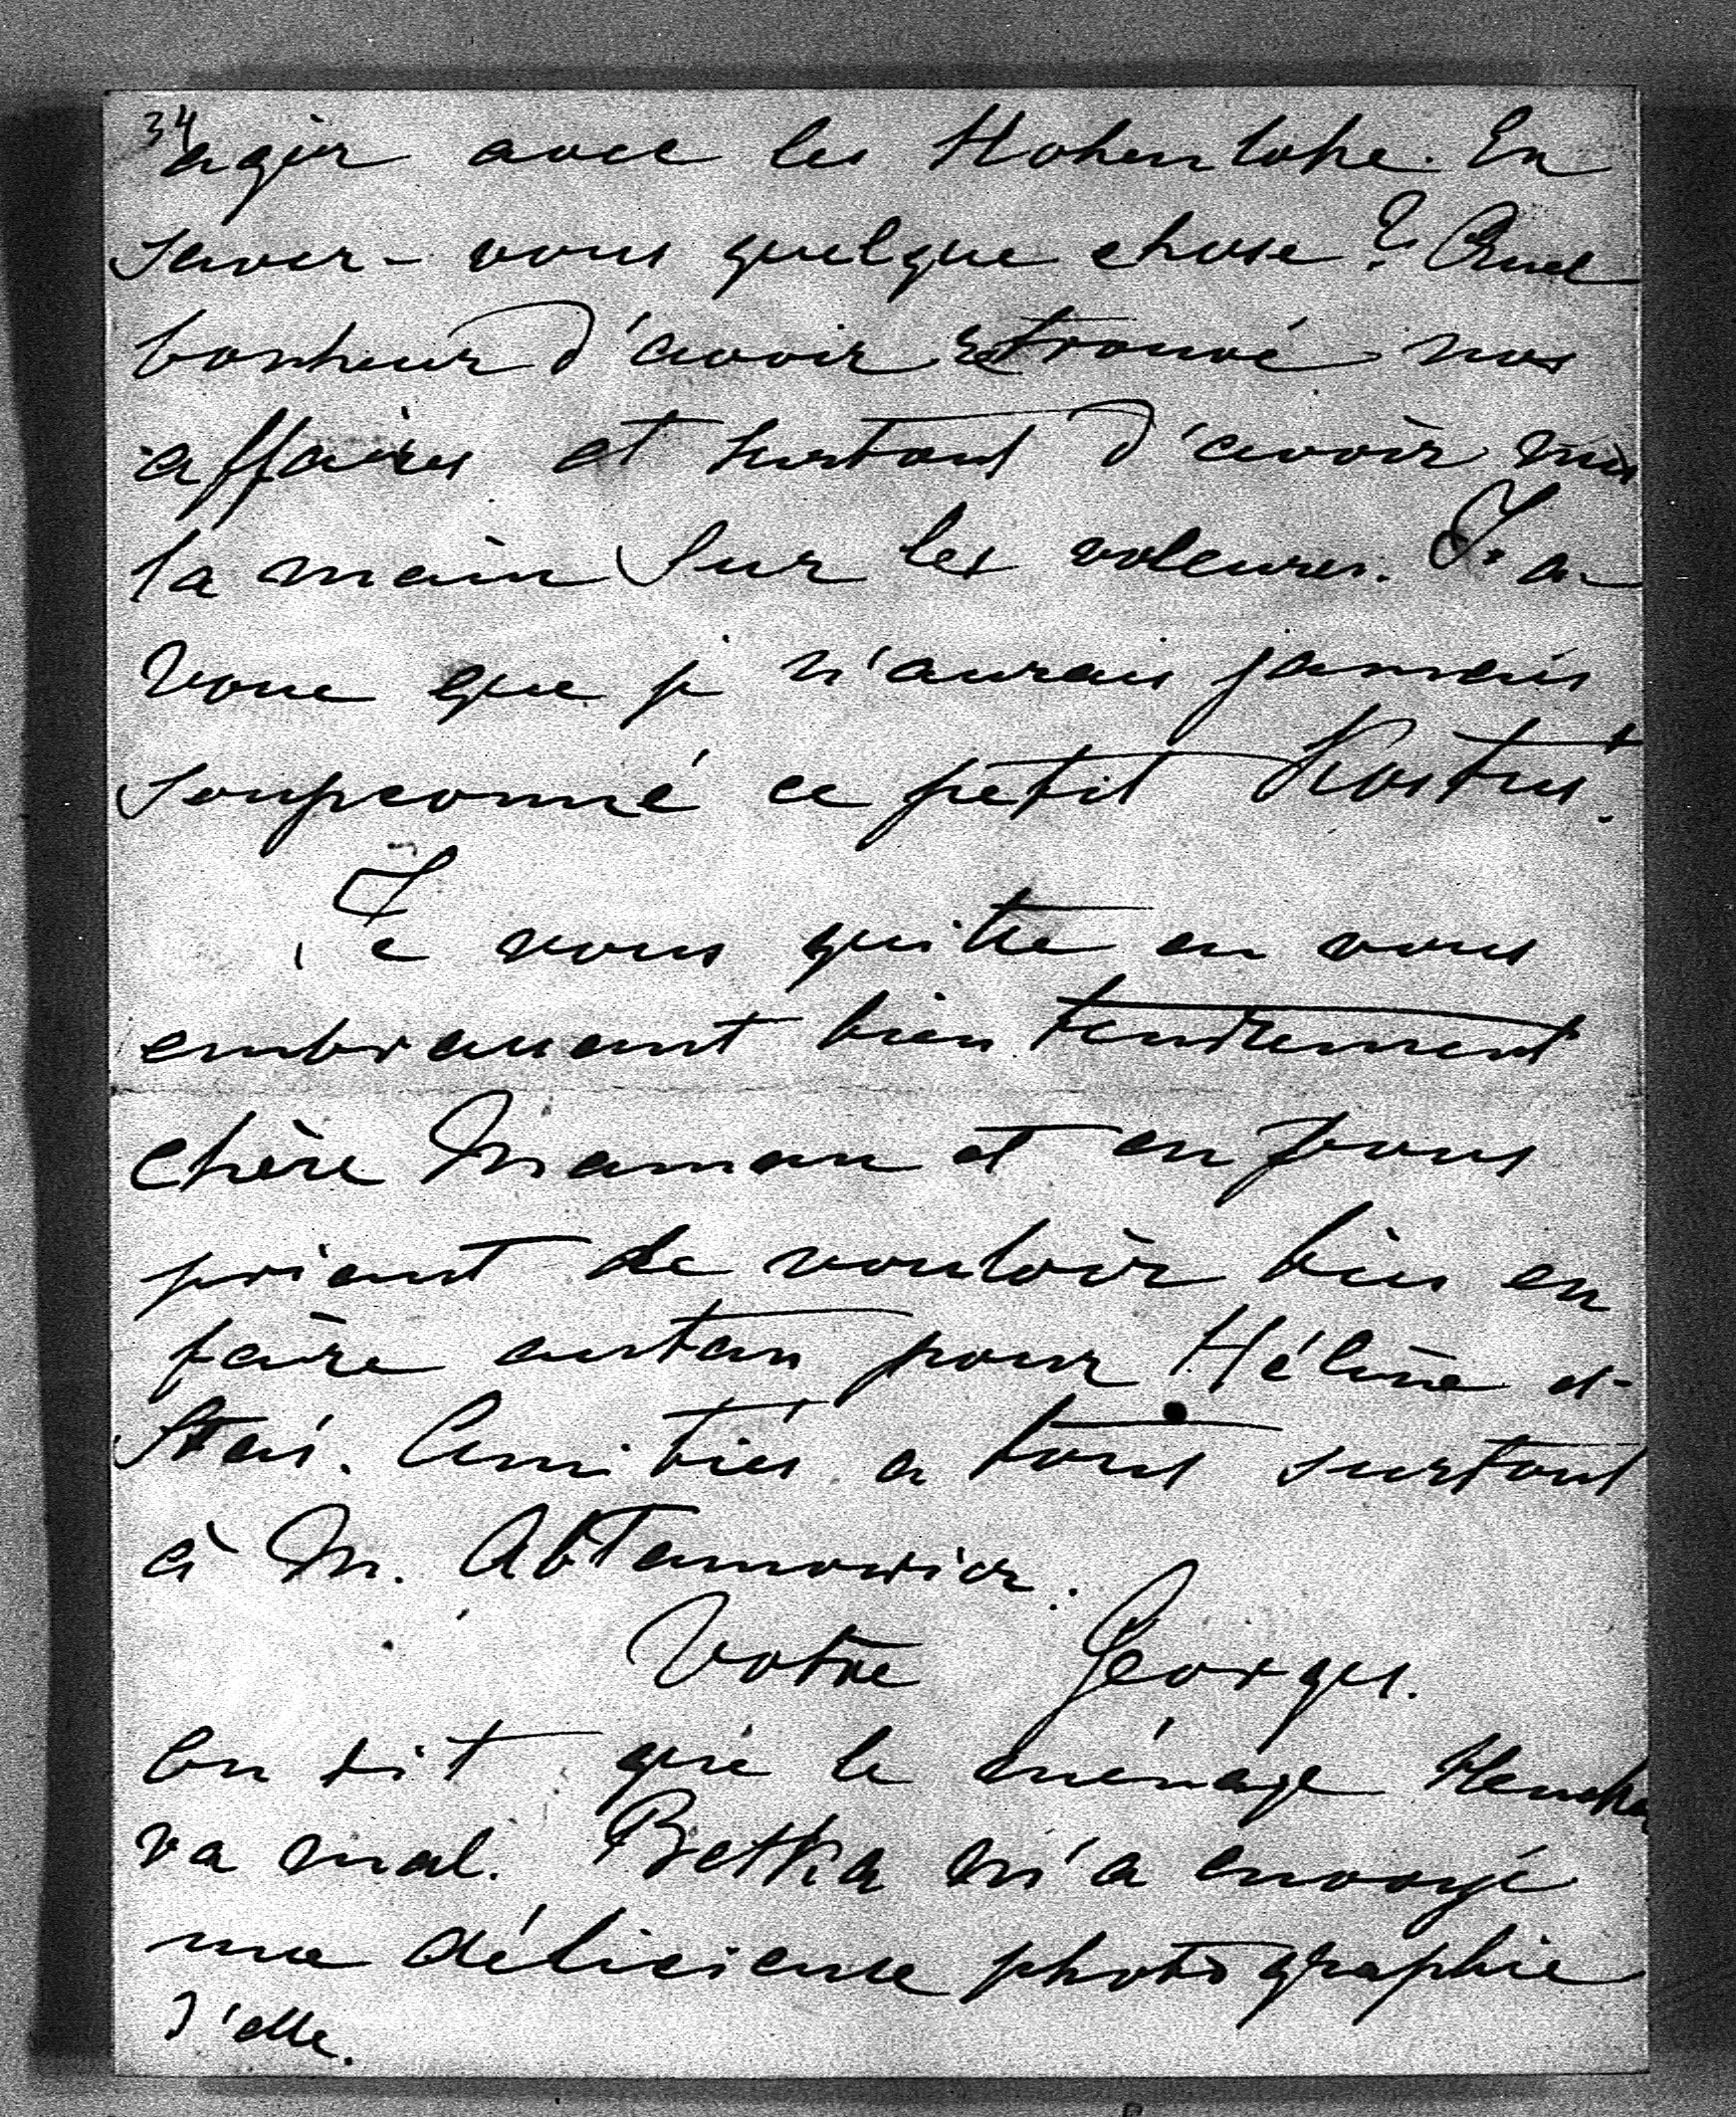 34
agir avec les Hohenlohe. En
savez-vous quelque chose? Quel
bonheur d'avoir retrouvé nos
affaires et surtout d'avoir mis
la main sur les voleurs. J'a-
voue que je n'aurais jamais
soupconné ce petit Kostus.
Je vous quitte en vous
embrassant bien tendrement
chère Maman et en vous
priant de vouloir bien en
faire autan pour Hélène et
Staś. Amitiés a tous surtout
à M. Abramowicz.
Votre Georges.
On dit que le ménage
va mal. Betka m'a envoyé
une délicieuse photographie
d'elle.